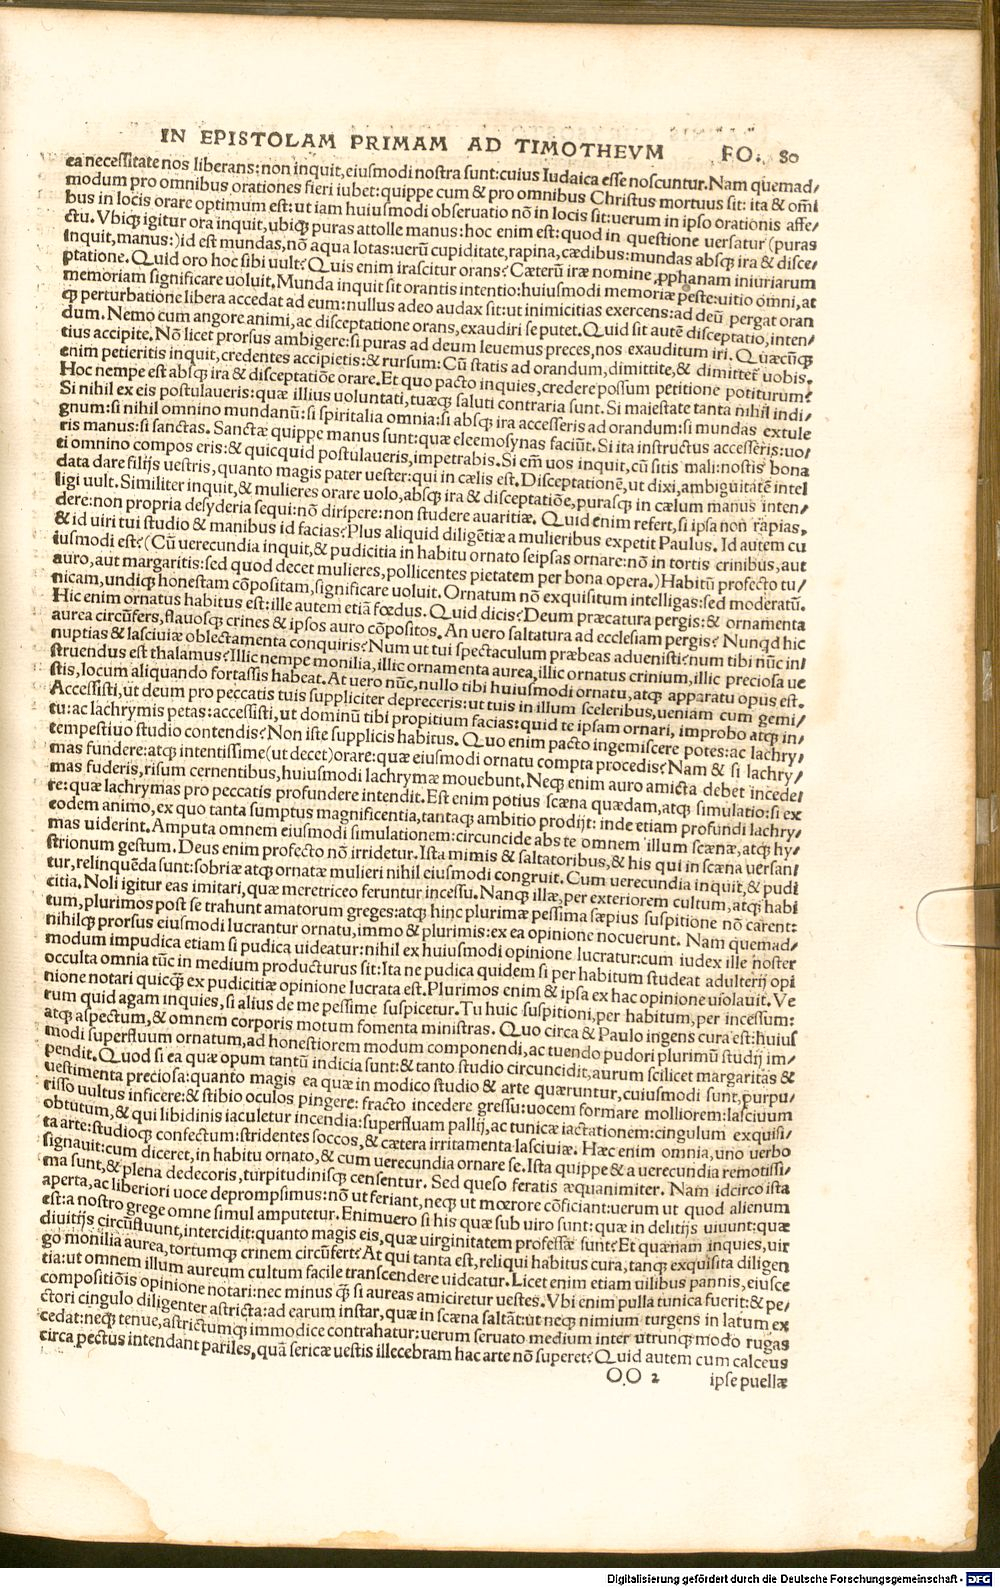 IN EPISTOLAM PRIMAM AD TIMOTHEVM FO. 80
ea necessitate nos liberans: non inquit, eiusmodi nostra sunt: cuius Iudaica esse noscuntur. Nam quemad/
modum pro omnibus orationes fieri iubet: quippe cum & pro omnibus Christus mortuus sit: ita & om̃i
bus in locis orare optimum est: ut iam huiusmodi obseruatio nõ in locis sit: uerum in ipso orationis affe/
ctu. Vbiqꝫ igitur ora inquit, ubiqꝫ puras attolle manus: hoc enim est: quod in questione uersatur (puras
inquit, manus:) id est mundas, nõ aqua lotas: uerũ cupiditate, rapina, cædibus: mundas absqꝫ ira & disce/
ptatione. Quid oro hoc sibi uult? Quis enim irascitur orans? Cæterũ iræ nomine ꝓphanam iniuriarum
memoriam significare uoluit. Munda inquit sit orantis intentio: huiusmodi memoriæ peste: uitio omni, at
qꝫ perturbatione libera accedat ad eum: nullus adeo audax sit: ut inimicitias exercens: ad deũ pergat oran
dum. Nemo cum angore animi, ac disceptatione orans, exaudiri se putet. Quid sit autẽ disceptatio, inten/
tius accipite. Nõ licet prorsus ambigere: si puras ad deum leuemus preces, nos exauditum iri. Quæcũqꝫ
enim petieritis inquit, credentes accipietis: & rursum: Cũ statis ad orandum, dimittite, & dimittet̃ uobis.
Hoc nempe est absqꝫ ira & disceptatiõe orare. Et quo pacto inquies, credere possum petitione potiturum?
Si nihil ex eis postulaueris: quæ illius uoluntati, tuæqꝫ saluti contraria sunt. Si maiestate tanta nihil indi/
gnum: si nihil omnino mundanũ: si spiritalia omnia: si absqꝫ ira accesseris ad orandum: si mundas extule
ris manus: si sanctas. Sanctæ quippe manus sunt: quæ eleemosynas faciũt. Si ita instructus accesseris: uo/
ti omnino compos eris: & quicquid postulaueris, impetrabis. Si em̃ uos inquit, cũ sitis mali: nostis bona
data dare filijs uestris, quanto magis pater uester: qui in cælis est. Disceptationẽ, ut dixi, ambiguitatẽ intel
ligi uult. Similiter inquit, & mulieres orare uolo, absqꝫ ira & disceptatiõe, purasqꝫ in cælum manus inten/
dere: non propria desyderia sequi: nõ diripere: non studere auaritiæ. Quid enim refert, si ipsa non rapias,
& id uiri tui studio & manibus id facias? Plus aliquid diligẽtiæ a mulieribus expetit Paulus. Id autem cu
iusmodi est? (Cũ uerecundia inquit, & pudicitia in habitu ornato seipsas ornare: nõ in tortis crinibus, aut
auro, aut margaritis: sed quod decet mulieres, pollicentes pietatem per bona opera.) Habitũ profecto tu/
nicam, undiqꝫ honestam cõpositam, significare uoluit. Ornatum nõ exquisitum intelligas: sed moderatũ.
Hic enim ornatus habitus est: ille autem etiã fœdus. Quid dicis? Deum præcatura pergis: & ornamenta
aurea circũfers, flauosqꝫ crines & ipsos auro cõpositos. An uero saltatura ad ecclesiam pergis? Nunqd hic
nuptias & lasciuiæ oblectamenta conquiris? Num ut tui spectaculum præbeas aduenisti? num tibi nũc in/
struendus est thalamus? Illic nempe monilia, illic ornamenta aurea, illic ornatus crinium, illic preciosa ue
stis, locum aliquando fortassis habeat. At uero nũc, nullo tibi huiusmodi ornatu, atqꝫ apparatu opus est.
Accessisti, ut deum pro peccatis tuis suppliciter depreceris: ut tuis in illum sceleribus, ueniam cum gemi/
tu: ac lachrymis petas: accessisti, ut dominũ tibi propitium facias: quid te ipsam ornari, improbo atqꝫ in/
tempestiuo studio contendis? Non iste supplicis habitus. Quo enim pacto ingemiscere potes: ac lachry/
mas fundere: atqꝫ intentissime (ut decet) orare: quæ eiusmodi ornatu compta procedis? Nam & si lachry/
mas fuderis, risum cernentibus, huiusmodi lachrymæ mouebunt. Neqꝫ enim auro amicta debet incede/
re: quæ lachrymas pro peccatis profundere intendit. Est enim potius scæna quædam, atqꝫ simulatio: si ex
eodem animo, ex quo tanta sumptus magnificentia, tantaqꝫ ambitio prodijt: inde etiam profundi lachry/
mas uiderint. Amputa omnem eiusmodi simulationem: circuncide abs te omnem illum scænæ, atqꝫ hy/
strionum gestum. Deus enim profecto nõ irridetur. Ista mimis & saltatoribus, & his qui in scæna uersan/
tur, relinquẽda sunt: sobriæ atqꝫ ornatæ mulieri nihil eiusmodi congruit. Cum uerecundia inquit, & pudi
citia. Noli igitur eas imitari, quæ meretriceo feruntur incessu. Nanqꝫ illæ, per exteriorem cultum, atqꝫ habi
tum, plurimos post se trahunt amatorum greges: atqꝫ hinc plurimæ pessima sæpius suspitione nõ carent:
nihilqꝫ prorsus eiusmodi lucrantur ornatu, immo & plurimis: ex ea opinione nocuerunt. Nam quemad/
modum impudica etiam si pudica uideatur: nihil ex huiusmodi opinione lucratur: cum iudex ille noster
occulta omnia tũc in medium producturus sit: Ita ne pudica quidem si per habitum studeat adulterij opi
nione notari quicqꝫ ex pudicitiæ opinione lucrata est. Plurimos enim & ipsa ex hac opinione uiolauit. Ve
rum quid agam inquies, si alius de me pessime suspicetur. Tu huic suspitioni, per habitum, per incessum:
atqꝫ aspectum, & omnem corporis motum fomenta ministras. Quo circa & Paulo ingens cura est: huius
modi superfluum ornatum, ad honestiorem modum componendi, ac tuendo pudori plurimũ studij im/
pendit. Quod si ea quæ opum tantũ indicia sunt: & tanto studio circuncidit, aurum scilicet margaritas &
uestimenta preciosa: quanto magis ea quæ in modico studio & arte quæruntur, cuiusmodi sunt, purpu/
risso uultus inficere: & stibio oculos pingere: fracto incedere gressu: uocem formare molliorem: lasciuum
obtutum, & qui libidinis iaculetur incendia: superfluam pallij, ac tunicæ iactationem: cingulum exquisi/
ta arte: studioqꝫ confectum: stridentes soccos, & cætera irritamenta lasciuiæ. Hæc enim omnia, uno uerbo
signauit: cum diceret, in habitu ornato, & cum uerecundia ornare se. Ista quippe & a uerecundia remotissi/
ma sunt, & plena dedecoris, turpitudinisqꝫ censentur. Sed queso feratis æquanimiter. Nam idcirco ista
aperta, ac liberiori uoce deprompsimus: nõ ut feriant, neqꝫ ut mœrore cõficiant: uerum ut quod alienum
est: a nostro grege omne simul amputetur. Enimuero si his quæ sub uiro sunt: quæ in delitijs uiuunt: quæ
diuitijs circũfluunt, intercidit: quanto magis eis, quæ uirginitatem professæ sunt? Et quænam inquies, uir
go monilia aurea, tortumqꝫ crinem circũfert? At qui tanta est, reliqui habitus cura, tanqꝫ exquisita diligen
tia: ut omnem illum aureum cultum facile transcendere uideatur. Licet enim etiam uilibus pannis, eiusce
compositiõis opinione notari: nec minus qꝫ̃ si aureas amiciretur uestes. Vbi enim pulla tunica fuerit: & pe/
ctori cingulo diligenter astricta: ad earum instar, quæ in scæna saltãt: ut neqꝫ nimium turgens in latum ex
cedat: neqꝫ tenue, astrictumqꝫ immodice contrahatur: uerum seruato medium inter utrunqꝫ modo rugas
circa pectus intendant pariles, quã sericæ uestis illecebram hac arte nõ superet? Quid autem cum calceus
OO 2 ipse puellæ
Digitalisierung gefördert durch die Deutsche Forschungsgemeinschaft - DFG